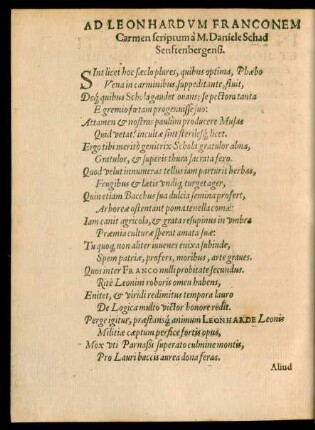 AD LEONHARDVM FRANCONEM
Carmen scriptum à M. Daniele Schad
Senstenbergensi.
SInt licet hoc sæclo plures, quibus optima, Phœbo
Vena in carminibus, suppeditante, fluit,
Deq́; quibus Schola gaudet ouans; se pectora tanta
E gremio fœtam progenuisse suo:
Attamen & nostras paulùm producere Musas
Quid vetat? incultæ sint sterilesq́; licet.
Ergo tibi meritò genitrix Schola gratulor alma,
Gratulor, & superis thura sacrata fero.
Quod velut innumeras tellus iam parturit herbas,
Frugibus & lætis vndiq; turget ager,
Quin etiam Bacchus sua dulcia semina profert,
Arboreæ ostentant poma tenella comæ:
Iam canit agricola, & grata resupinus in vmbra
Præmia culturæ sperat amata suæ:
Tu quoq; non aliter iuuenes enixa subinde,
Spem patriæ, profers, moribus, arte graues.
Quos inter FRANCO nulli probitate secundus.
Ritè Leonini roboris omen habens,
Enitet, & viridi redimitus tempora lauro
De Logica multo victor honore redit.
Perge igitur, præstansq́; animum LEONHARDE Leonis
Militiæ cæptum perfice fortis opus,
Mox vti Parnassi superato culmine montis,
Pro Lauri baccis aurea dona feras.
Aliud